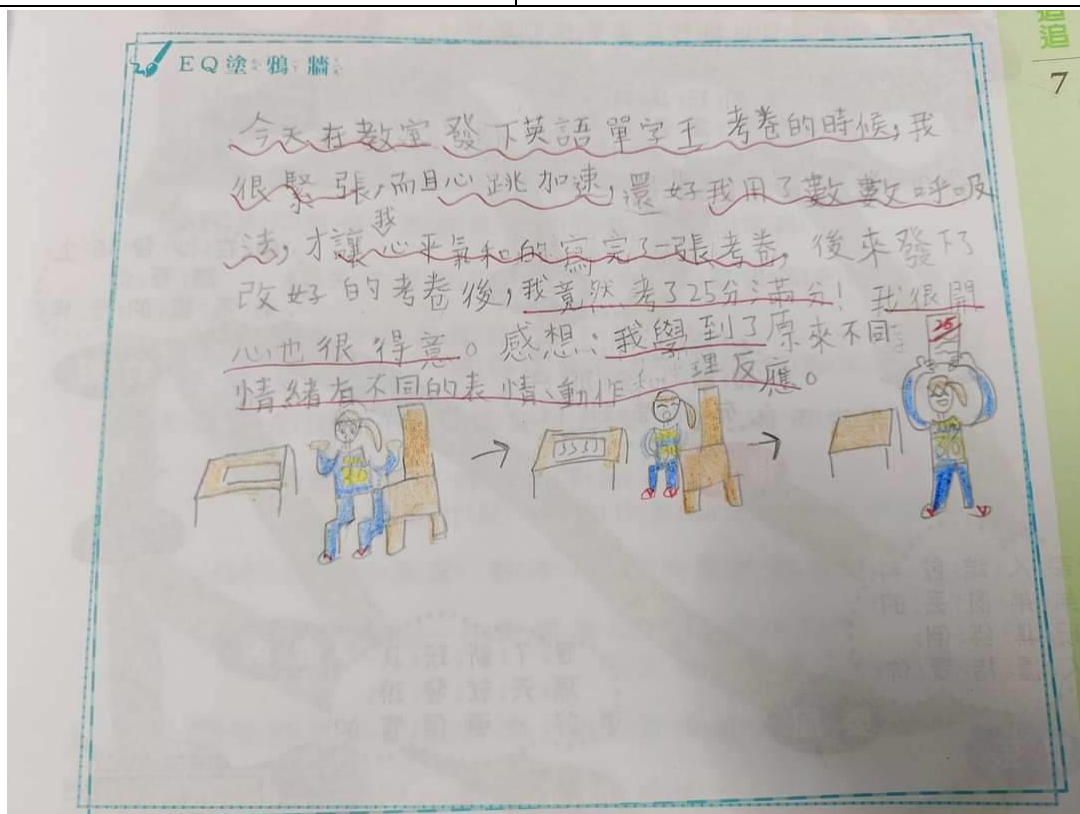 追追
7
EQ塗鴉牆
今天在教室發下英語單字王考卷的時候,我
很緊張,而且心跳加速,還好我用了數數呼吸
法,才讓我心平氣和的寫完了一張考卷,後來發下了
改好的考卷後,我竟然考了25分滿分!我很開
心也很得意。感想:我學到了原來不同
情緒有不同的表情、動作和生理反應。
25